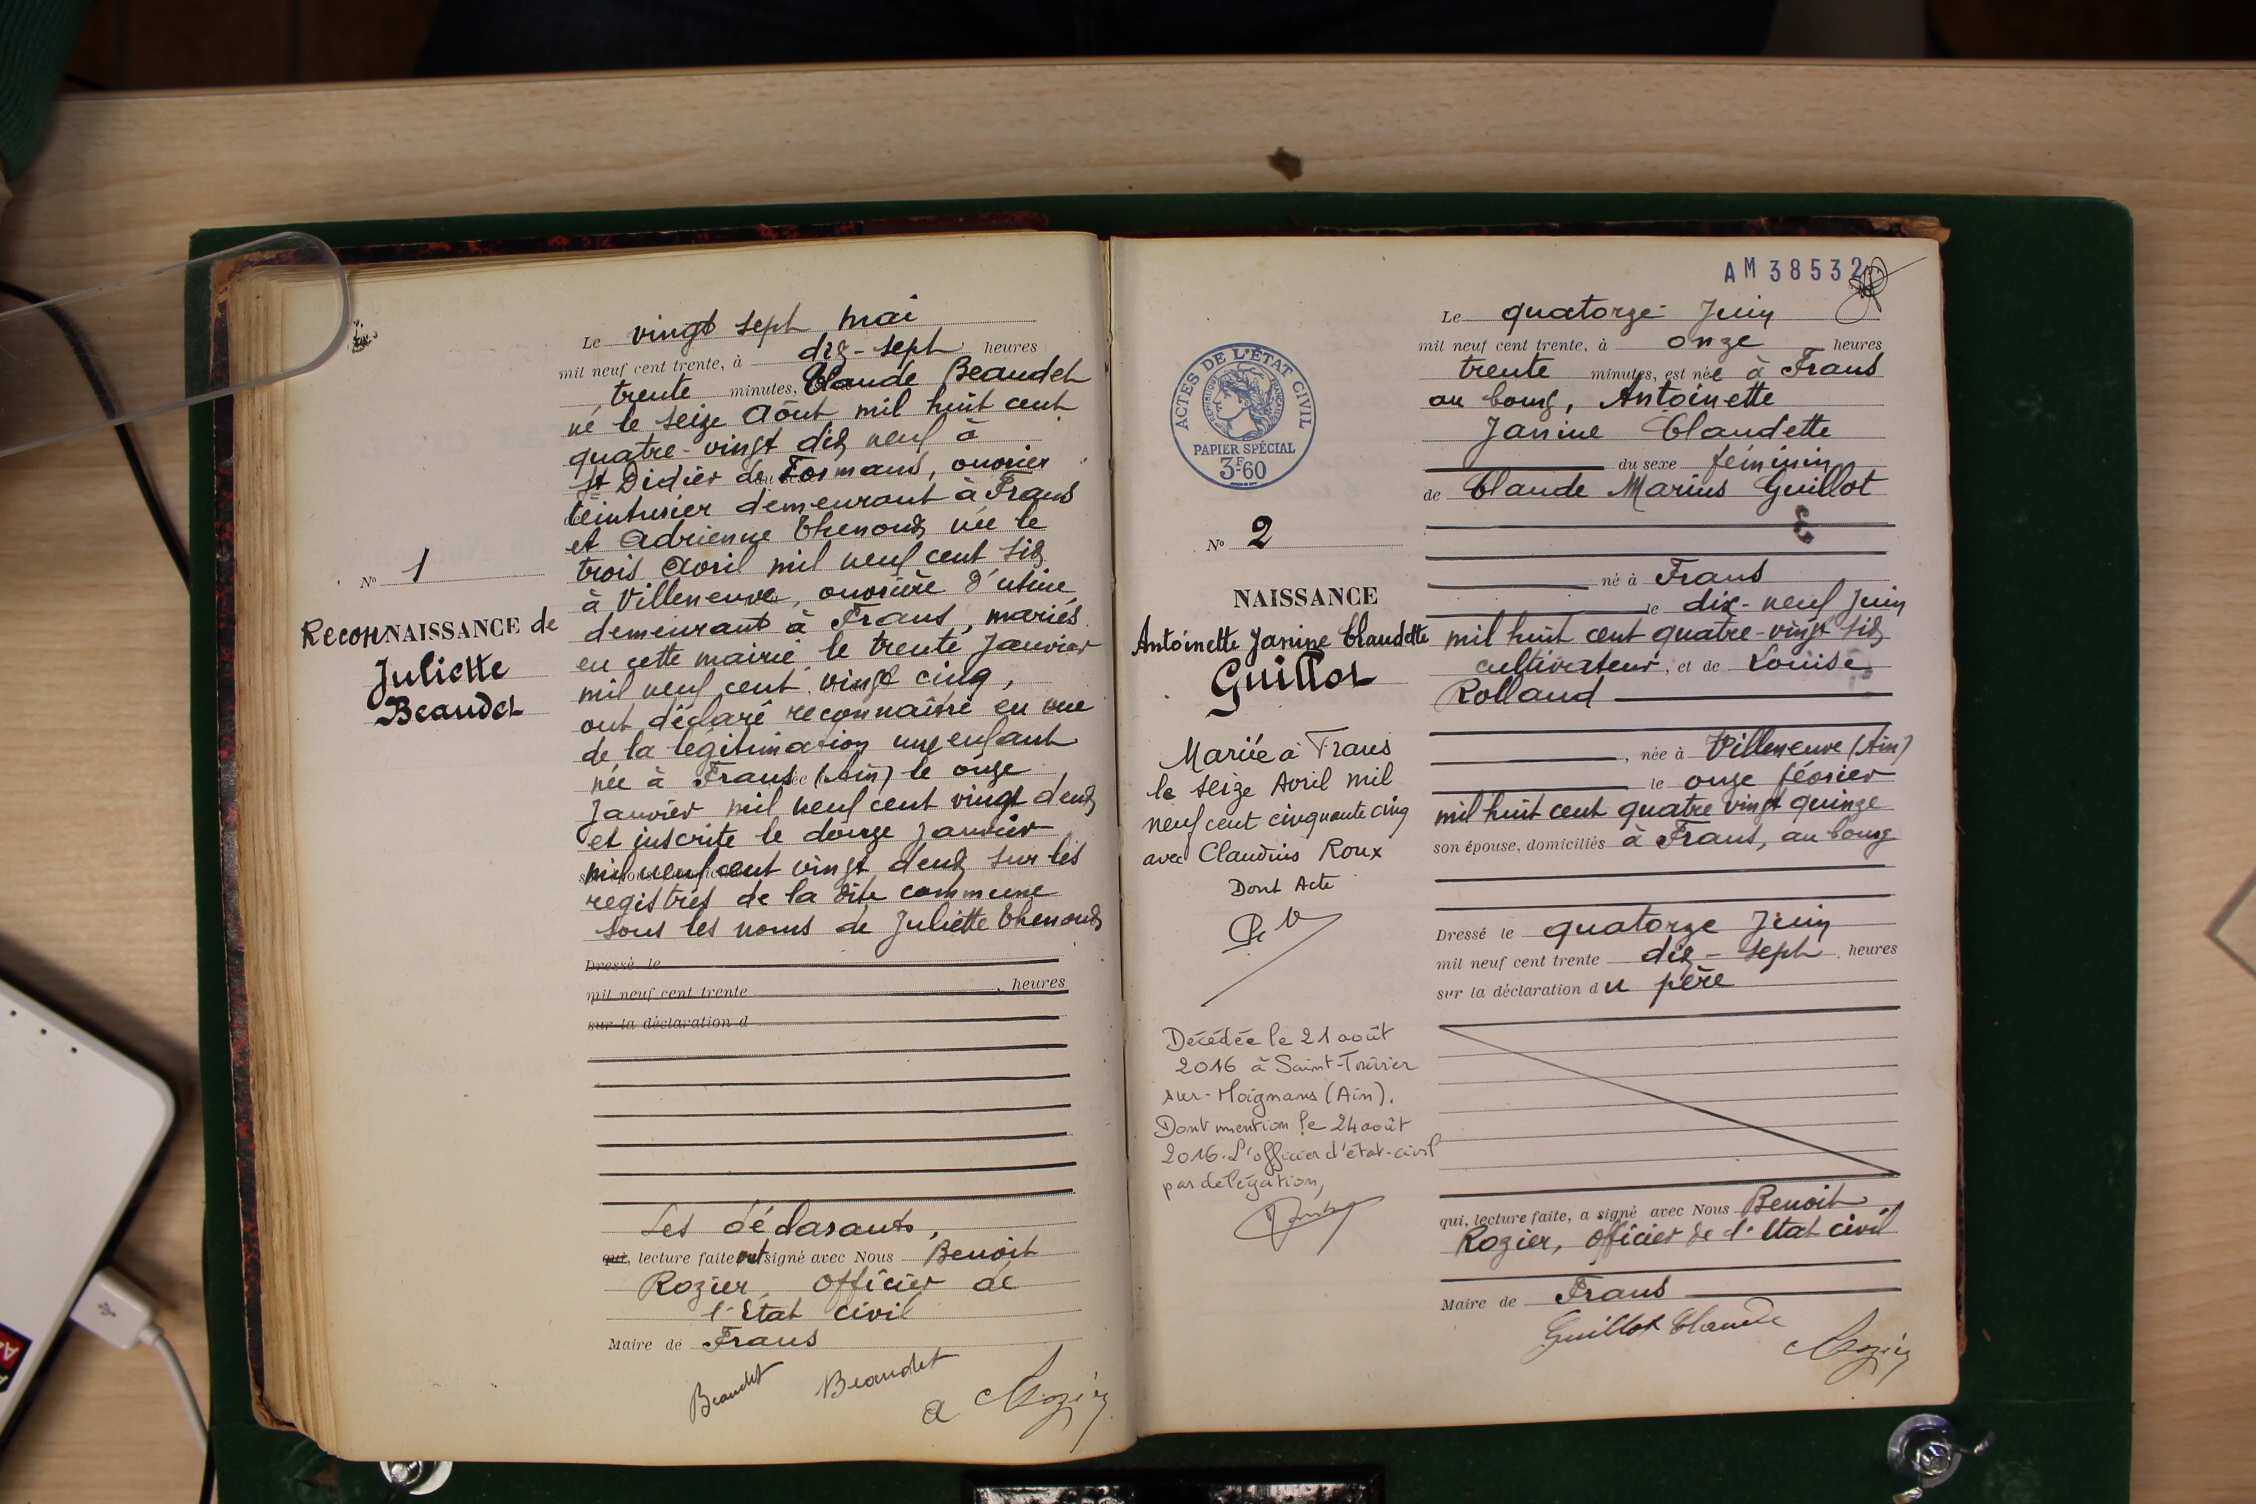 N° 1
ReconNAISSANCE de
Juliette
Beaudet
Le vingt sept Mai
mil neuf cent trente, à dix-sept heures
trente minutes, Claude Beaudet
né le seize Août mil huit cent
quatre-vingt dix neuf à
St Didier de Formans, ouvrier
teinturier demeurant à Frans
et Adrienne Thenoux née le
trois Avril mil neuf cent six
à Villeneuve, ouvrière d'usine
demeurant à Frans, mariés
en cette mairie le trente Janvier
mil neuf cent vingt cinq,
ont déclaré reconnaître en vue
de la légitimation une enfant
née à Frans (Ain) le onze
Janvier mil neuf cent vingt deux
et inscrite le douze janvier
mil neuf cent vingt deux sur les
registres de la dite commune
sous les noms de Juliette Thenoux
Dressé le
mil neuf cent trente , heures
sur la déclaration d
Les déclarants,
qui, lecture faite ont signé avec Nous Benoit
Rozier, Officier de
l'Etat civil
Maire de Frans
Beaudet Beaudet
a Rozier
AM 38532
ACTES DE L'ÉTAT CIVIL
RÉPUBLIQUE FRANÇAISE
PAPIER SPÉCIAL
3F60
N° 2
NAISSANCE
Antoinette Janine Claudette
Guillot
Mariée à Frans
le seize Avril mil
neuf cent cinquante cinq
avec Claudius Roux
Dont Acte
Décédée le 21 août
2016 à Saint-Trivier
sur-Moignans (Ain).
Dont mention le 24 août
2016. L'officier d'état-civil
par délégation,
Le quatorze Juin
mil neuf cent trente, à onze heures
trente minutes, est née à Frans
au bourg, Antoinette
Janine Claudette
du sexe féminin
de Claude Marius Guillot
né à Frans
le dix-neuf Juin
mil huit cent quatre-vingt six
cultivateur, et de Louise
Rolland
, née à Villeneuve (Ain)
le onze février
mil huit cent quatre vingt quinze
son épouse, domiciliés à Frans, au bourg
Dressé le quatorze Juin
mil neuf cent trente dix-sept heures
sur la déclaration du père
qui, lecture faite, a signé avec Nous Benoit
Rozier, Officier de l'Etat civil
Maire de Frans
Guillot Claude
Rozier